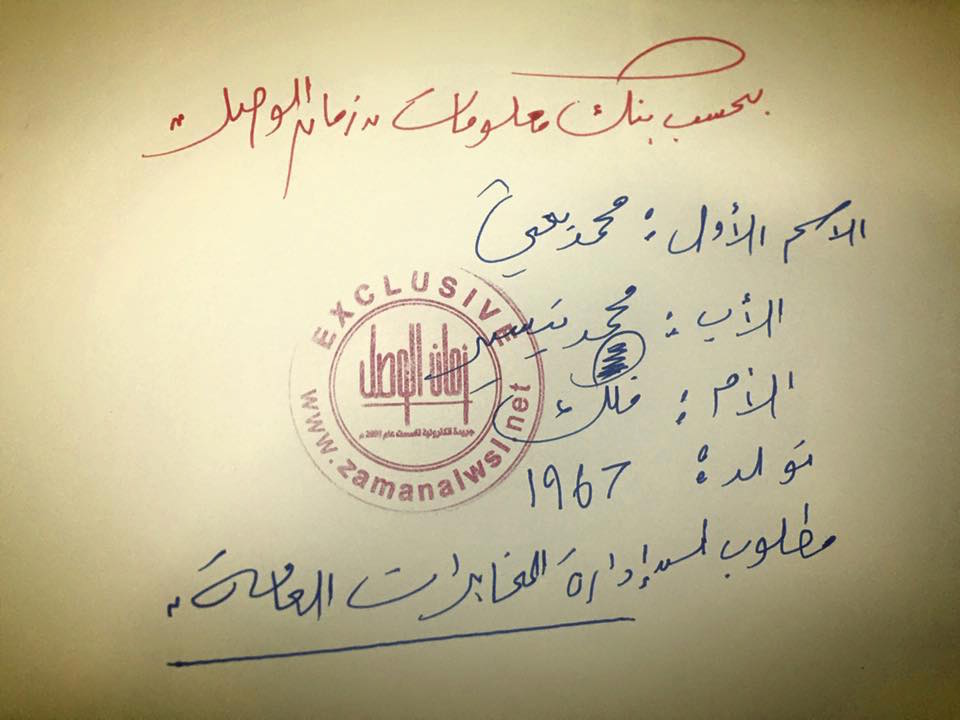 بحسب بنك معلومات "زمان الوصل"
الاسم الأول: محمد يحيى
الأب: محمد تيسير
الأم: فلك
تولد: 1967
مطلوب لـ إدارة المخابرات العامة"
EXCLUSIVE
زمان الوصل
جريدة الكترونية تأسست عام 2005 م
www.zamanalwsl.net